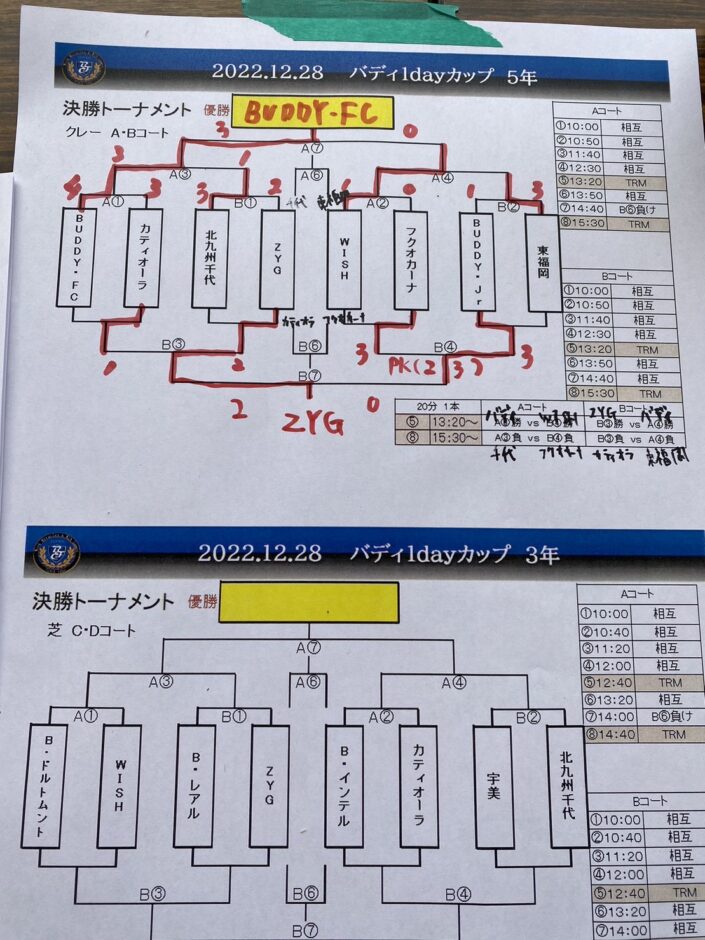 2022.12.28 バディ1dayカップ 5年
決勝トーナメント 優勝 BUDDY-FC
クレー A・Bコート
3 A⑦ 0
2 A③ 1 A⑥ A④
4 A① 3 3 B① 2 千代 東福岡 1 A② 0 1 B② 3
BUDDY・FC
カティオーラ
北九州千代
ZYG
WISH
フクオカーナ
BUDDY・Jr
東福岡
カティオラ フクオカーナ
1 B③ 2 B⑥ 3 PK(2 B④ 3) 3
B⑦
2 ZYG 0
Aコート
①10:00 相互
②10:50 相互
③11:40 相互
④12:30 相互
⑤13:20 TRM
⑥13:50 相互
⑦14:40 B⑥負け
⑧15:30 TRM
Bコート
①10:00 相互
②10:50 相互
③11:40 相互
④12:30 相互
⑤13:20 TRM
⑥13:50 相互
⑦14:40 相互
⑧15:30 TRM
20分 1本 Aコート ZYG Bコート
⑤ 13:20～ vs B④勝 B③勝 vs A④勝
⑧ 15:30～ A③負 vs B④負 B③負 vs A④負
千代 フクオカーナ カティオラ 東福岡
2022.12.28 バディ1dayカップ 3年
決勝トーナメント 優勝
芝 C・Dコート
A⑦
A③ A⑥ A④
A① B① A② B②
B・ドルトムント
WISH
B・レアル
ZYG
B・インテル
カティオーラ
宇美
北九州千代
B③ B⑥ B④
B⑦
Aコート
①10:00 相互
②10:40 相互
③11:20 相互
④12:00 相互
⑤12:40 TRM
⑥13:20 相互
⑦14:00 B⑥負け
⑧14:40 TRM
Bコート
①10:00 相互
②10:40 相互
③11:20 相互
④12:00 相互
⑤12:40 TRM
⑥13:20 相互
⑦14:00 相互